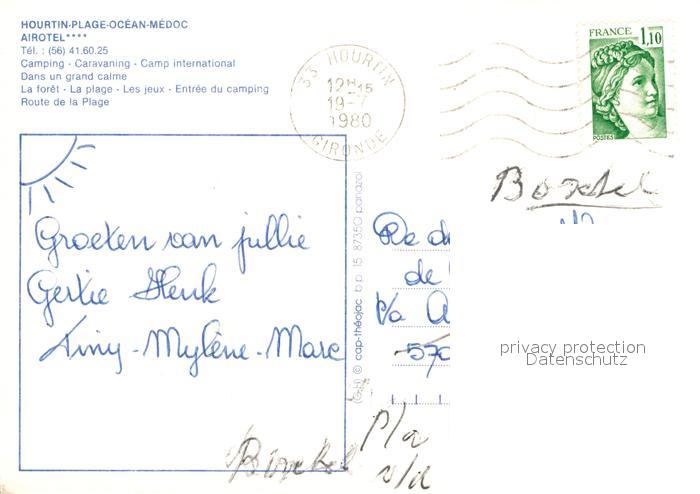 HOURTIN-PLAGE-OCÉAN-MÉDOC
AIROTEL****
Tél. : (56) 41.60.25
Camping - Caravaning - Camp international
Dans un grand calme
La forêt - La plage - Les jeux - Entrée du camping
Route de la Plage
33 HOURTIN
12H15
19-7
1980
GIRONDE
FRANCE
1,10
POSTES
Boxtel
Groeten van jullie
Gertie Henk
Tiny - Mylène - Marc
(G.H) © cap-théojac b.p. 15 87350 panazol
de
V/a
570
privacy protection
Datenschutz